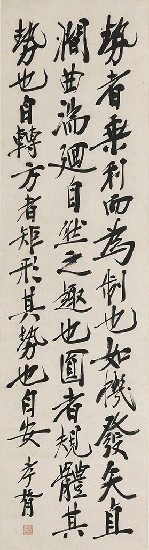 勢者乘利而為制也如機發矢直
澗曲湍迴自然之趣也圓者規體其
勢也自轉方者矩形其勢也自安 李膺